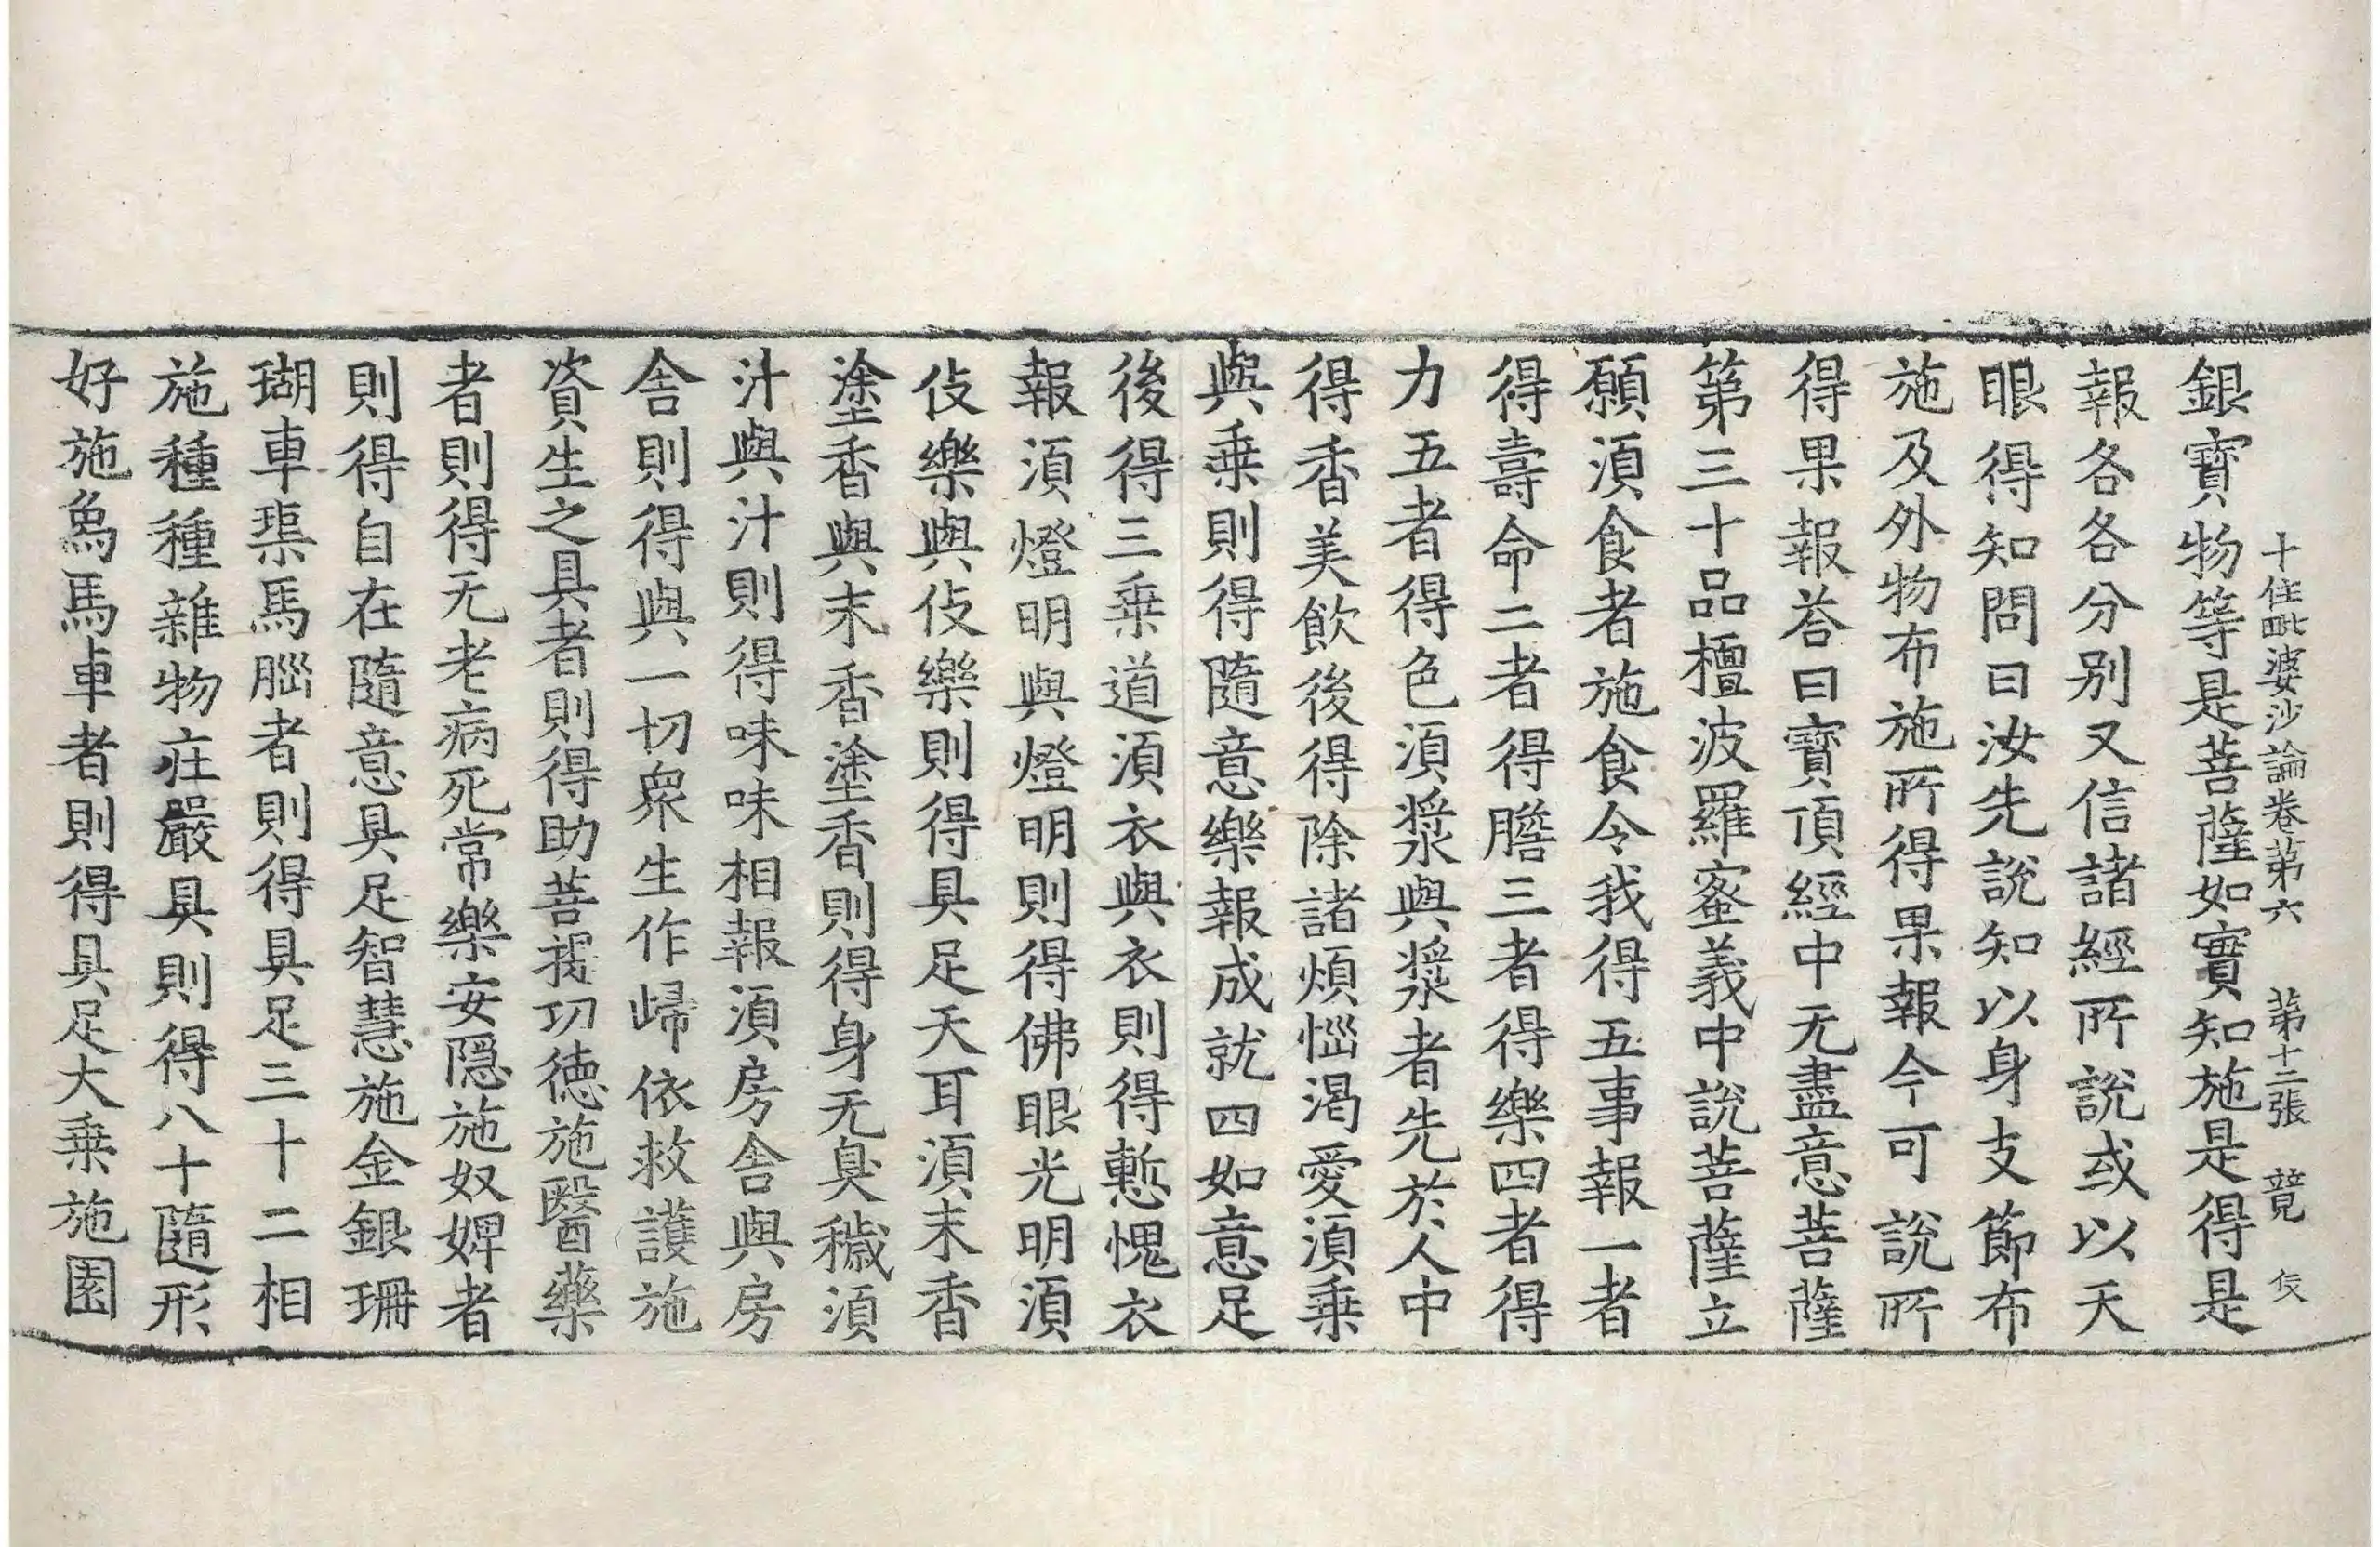 十住毗婆沙論卷第六 第十二張 覚
銀寶物等是菩薩如實知施是得是
報各各分別又信諸經所說或以天
眼得知問曰汝先說知以身支節布
施及外物布施所得果報今可說所
得果報荅曰寶頂經中无盡意菩薩
第三十品檀波羅蜜義中說菩薩立
願湏食者施食令我得五事報一者
得壽命二者得膽三者得樂四者得
力五者得色湏漿與漿者先於人中
得香美飲後得除諸煩惱渴愛湏乗
與乗則得隨意樂報成就四如意足
後得三乗道湏衣與衣則得慙愧衣
報湏燈明與燈明則得佛眼光明湏
伎樂與伎樂則得具足天耳湏末香
塗香與末香塗香則得身无臭穢湏
汁與汁則得味味相報湏房舍與房
舍則得與一切衆生作歸依救護施
資生之具者則得助菩提功徳施醫藥
者則得无老病死常樂安隠施奴婢者
則得自在隨意具足智慧施金銀珊
瑚車璖馬腦者則得具足三十二相
施種種雜物莊嚴具則得八十隨形
好施象馬車者則得具足大乗施園